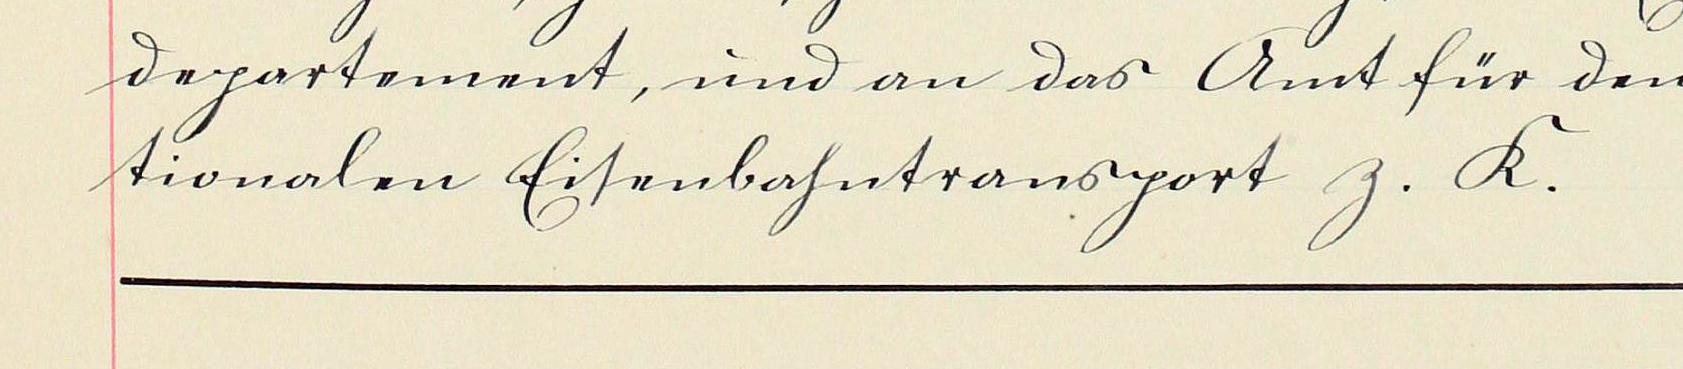 departement, und an das Amt für den
tionalen Eisenbahntransport z. K.